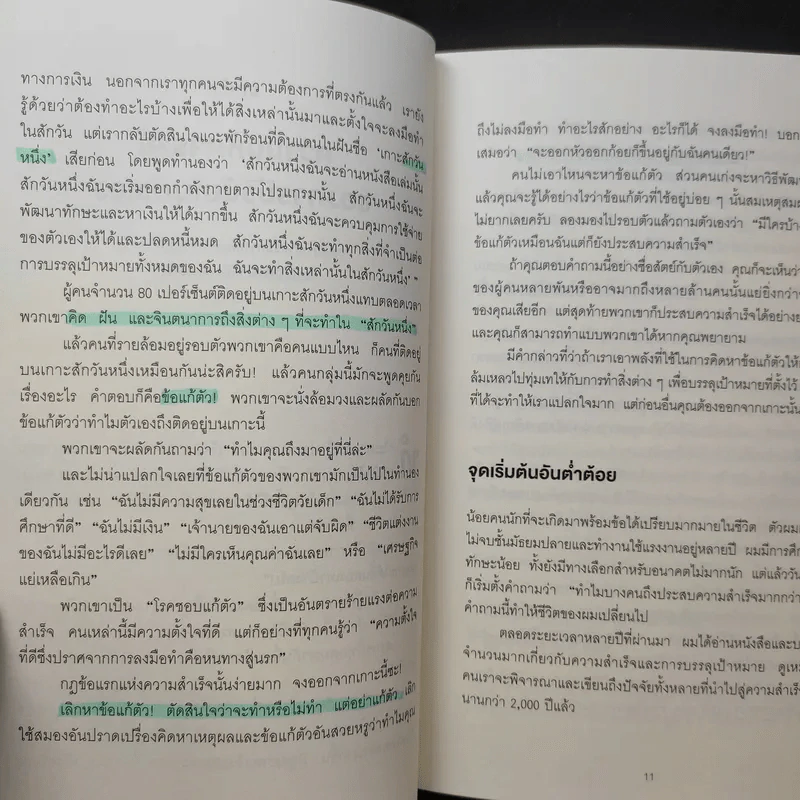 ทางการเงิน นอกจากเราทุกคนจะมีความต้องการที่ตรงกันแล้ว เรายัง
รู้ด้วยว่าต้องทำอะไรบ้างเพื่อให้ได้สิ่งเหล่านั้นมาและตั้งใจจะลงมือทำ
ในสักวัน แต่เรากลับตัดสินใจแวะพักร้อนที่ดินแดนในฝันชื่อ ‘เกาะสักวัน
หนึ่ง’ เสียก่อน โดยพูดทำนองว่า ‘สักวันหนึ่งฉันจะอ่านหนังสือเล่มนั้น
สักวันหนึ่งฉันจะเริ่มออกกำลังกายตามโปรแกรมนั้น สักวันหนึ่งฉันจะ
พัฒนาทักษะและหาเงินให้ได้มากขึ้น สักวันหนึ่งฉันจะควบคุมการใช้จ่าย
ของตัวเองให้ได้และปลดหนี้หมด สักวันหนึ่งฉันจะทำทุกสิ่งที่จำเป็นต่อ
การบรรลุเป้าหมายทั้งหมดของฉัน ฉันจะทำสิ่งเหล่านั้นในสักวันหนึ่ง’ ”
ผู้คนจำนวน 80 เปอร์เซ็นต์ติดอยู่บนเกาะสักวันหนึ่งแทบตลอดเวลา
พวกเขาคิด ฝัน และจินตนาการถึงสิ่งต่าง ๆ ที่จะทำใน “สักวันหนึ่ง”
แล้วคนที่รายล้อมอยู่รอบตัวพวกเขาคือคนแบบไหน ก็คนที่ติดอยู่
บนเกาะสักวันหนึ่งเหมือนกันน่ะสิครับ! แล้วคนกลุ่มนี้มักจะพูดคุยกัน
เรื่องอะไร คำตอบก็คือข้อแก้ตัว! พวกเขาจะนั่งล้อมวงและผลัดกันบอก
ข้อแก้ตัวว่าทำไมตัวเองถึงติดอยู่บนเกาะนี้
พวกเขาจะผลัดกันถามว่า “ทำไมคุณถึงมาอยู่ที่นี่ล่ะ”
และไม่น่าแปลกใจเลยที่ข้อแก้ตัวของพวกเขามักเป็นไปในทำนอง
เดียวกัน เช่น “ฉันไม่มีความสุขเลยในช่วงชีวิตวัยเด็ก” “ฉันไม่ได้รับการ
ศึกษาที่ดี” “ฉันไม่มีเงิน” “เจ้านายของฉันเอาแต่จับผิด” “ชีวิตแต่งงาน
ของฉันไม่มีอะไรดีเลย” “ไม่มีใครเห็นคุณค่าฉันเลย” หรือ “เศรษฐกิจ
แย่เหลือเกิน”
พวกเขาเป็น “โรคชอบแก้ตัว” ซึ่งเป็นอันตรายร้ายแรงต่อความ
สำเร็จ คนเหล่านี้มีความตั้งใจที่ดี แต่ก็อย่างที่ทุกคนรู้ว่า “ความตั้งใจ
ที่ดีซึ่งปราศจากการลงมือทำคือหนทางสู่นรก”
กฎข้อแรกแห่งความสำเร็จนั้นง่ายมาก จงออกจากเกาะนี้ซะ!
เลิกหาข้อแก้ตัว! ตัดสินใจว่าจะทำหรือไม่ทำ แต่อย่าแก้ตัว เลิก
ใช้สมองอันปราดเปรื่องคิดหาเหตุผลและข้อแก้ตัวอันสวยหรูว่าทำไมคุณ
ถึงไม่ลงมือทำ ทำอะไรสักอย่าง อะไรก็ได้ จงลงมือทำ! บอก
เสมอว่า “จะออกหัวออกก้อยก็ขึ้นอยู่กับฉันคนเดียว!”
คนไม่เอาไหนจะหาข้อแก้ตัว ส่วนคนเก่งจะหาวิธีพัฒ
แล้วคุณจะรู้ได้อย่างไรว่าข้อแก้ตัวที่ใช้อยู่บ่อย ๆ นั้นสมเหตุสมผ
ไม่ยากเลยครับ ลองมองไปรอบตัวแล้วถามตัวเองว่า “มีใครบ้า
ข้อแก้ตัวเหมือนฉันแต่ก็ยังประสบความสำเร็จ”
ถ้าคุณตอบคำถามนี้อย่างซื่อสัตย์กับตัวเอง คุณก็จะเห็นว่
ของผู้คนหลายพันหรืออาจมากถึงหลายล้านคนนั้นแย่ยิ่งกว่า
ของคุณเสียอีก แต่สุดท้ายพวกเขาก็ประสบความสำเร็จได้อย่างย
และคุณก็สามารถทำแบบพวกเขาได้หากคุณพยายาม
มีคำกล่าวที่ว่าถ้าเราเอาพลังที่ใช้ในการคิดหาข้อแก้ตัวให้
ล้มเหลวไปทุ่มเทให้กับการทำสิ่งต่าง ๆ เพื่อบรรลุเป้าหมายที่ตั้งไว้
ที่ได้จะทำให้เราแปลกใจมาก แต่ก่อนอื่นคุณต้องออกจากเกาะนั้น
จุดเริ่มต้นอันต่ำต้อย
น้อยคนนักที่จะเกิดมาพร้อมข้อได้เปรียบมากมายในชีวิต ตัวผม
ไม่จบชั้นมัธยมปลายและทำงานใช้แรงงานอยู่หลายปี ผมมีการศึก
ทักษะน้อย ทั้งยังมีทางเลือกสำหรับอนาคตไม่มากนัก แต่แล้ววัน
ก็เริ่มตั้งคำถามว่า “ทำไมบางคนถึงประสบความสำเร็จมากกว่า
คำถามนี้ทำให้ชีวิตของผมเปลี่ยนไป
ตลอดระยะเวลาหลายปีที่ผ่านมา ผมได้อ่านหนังสือและบ
จำนวนมากเกี่ยวกับความสำเร็จและการบรรลุเป้าหมาย ดูเหม
คนเราจะพิจารณาและเขียนถึงปัจจัยทั้งหลายที่นำไปสู่ความสำเร็
นานกว่า 2,000 ปีแล้ว
11